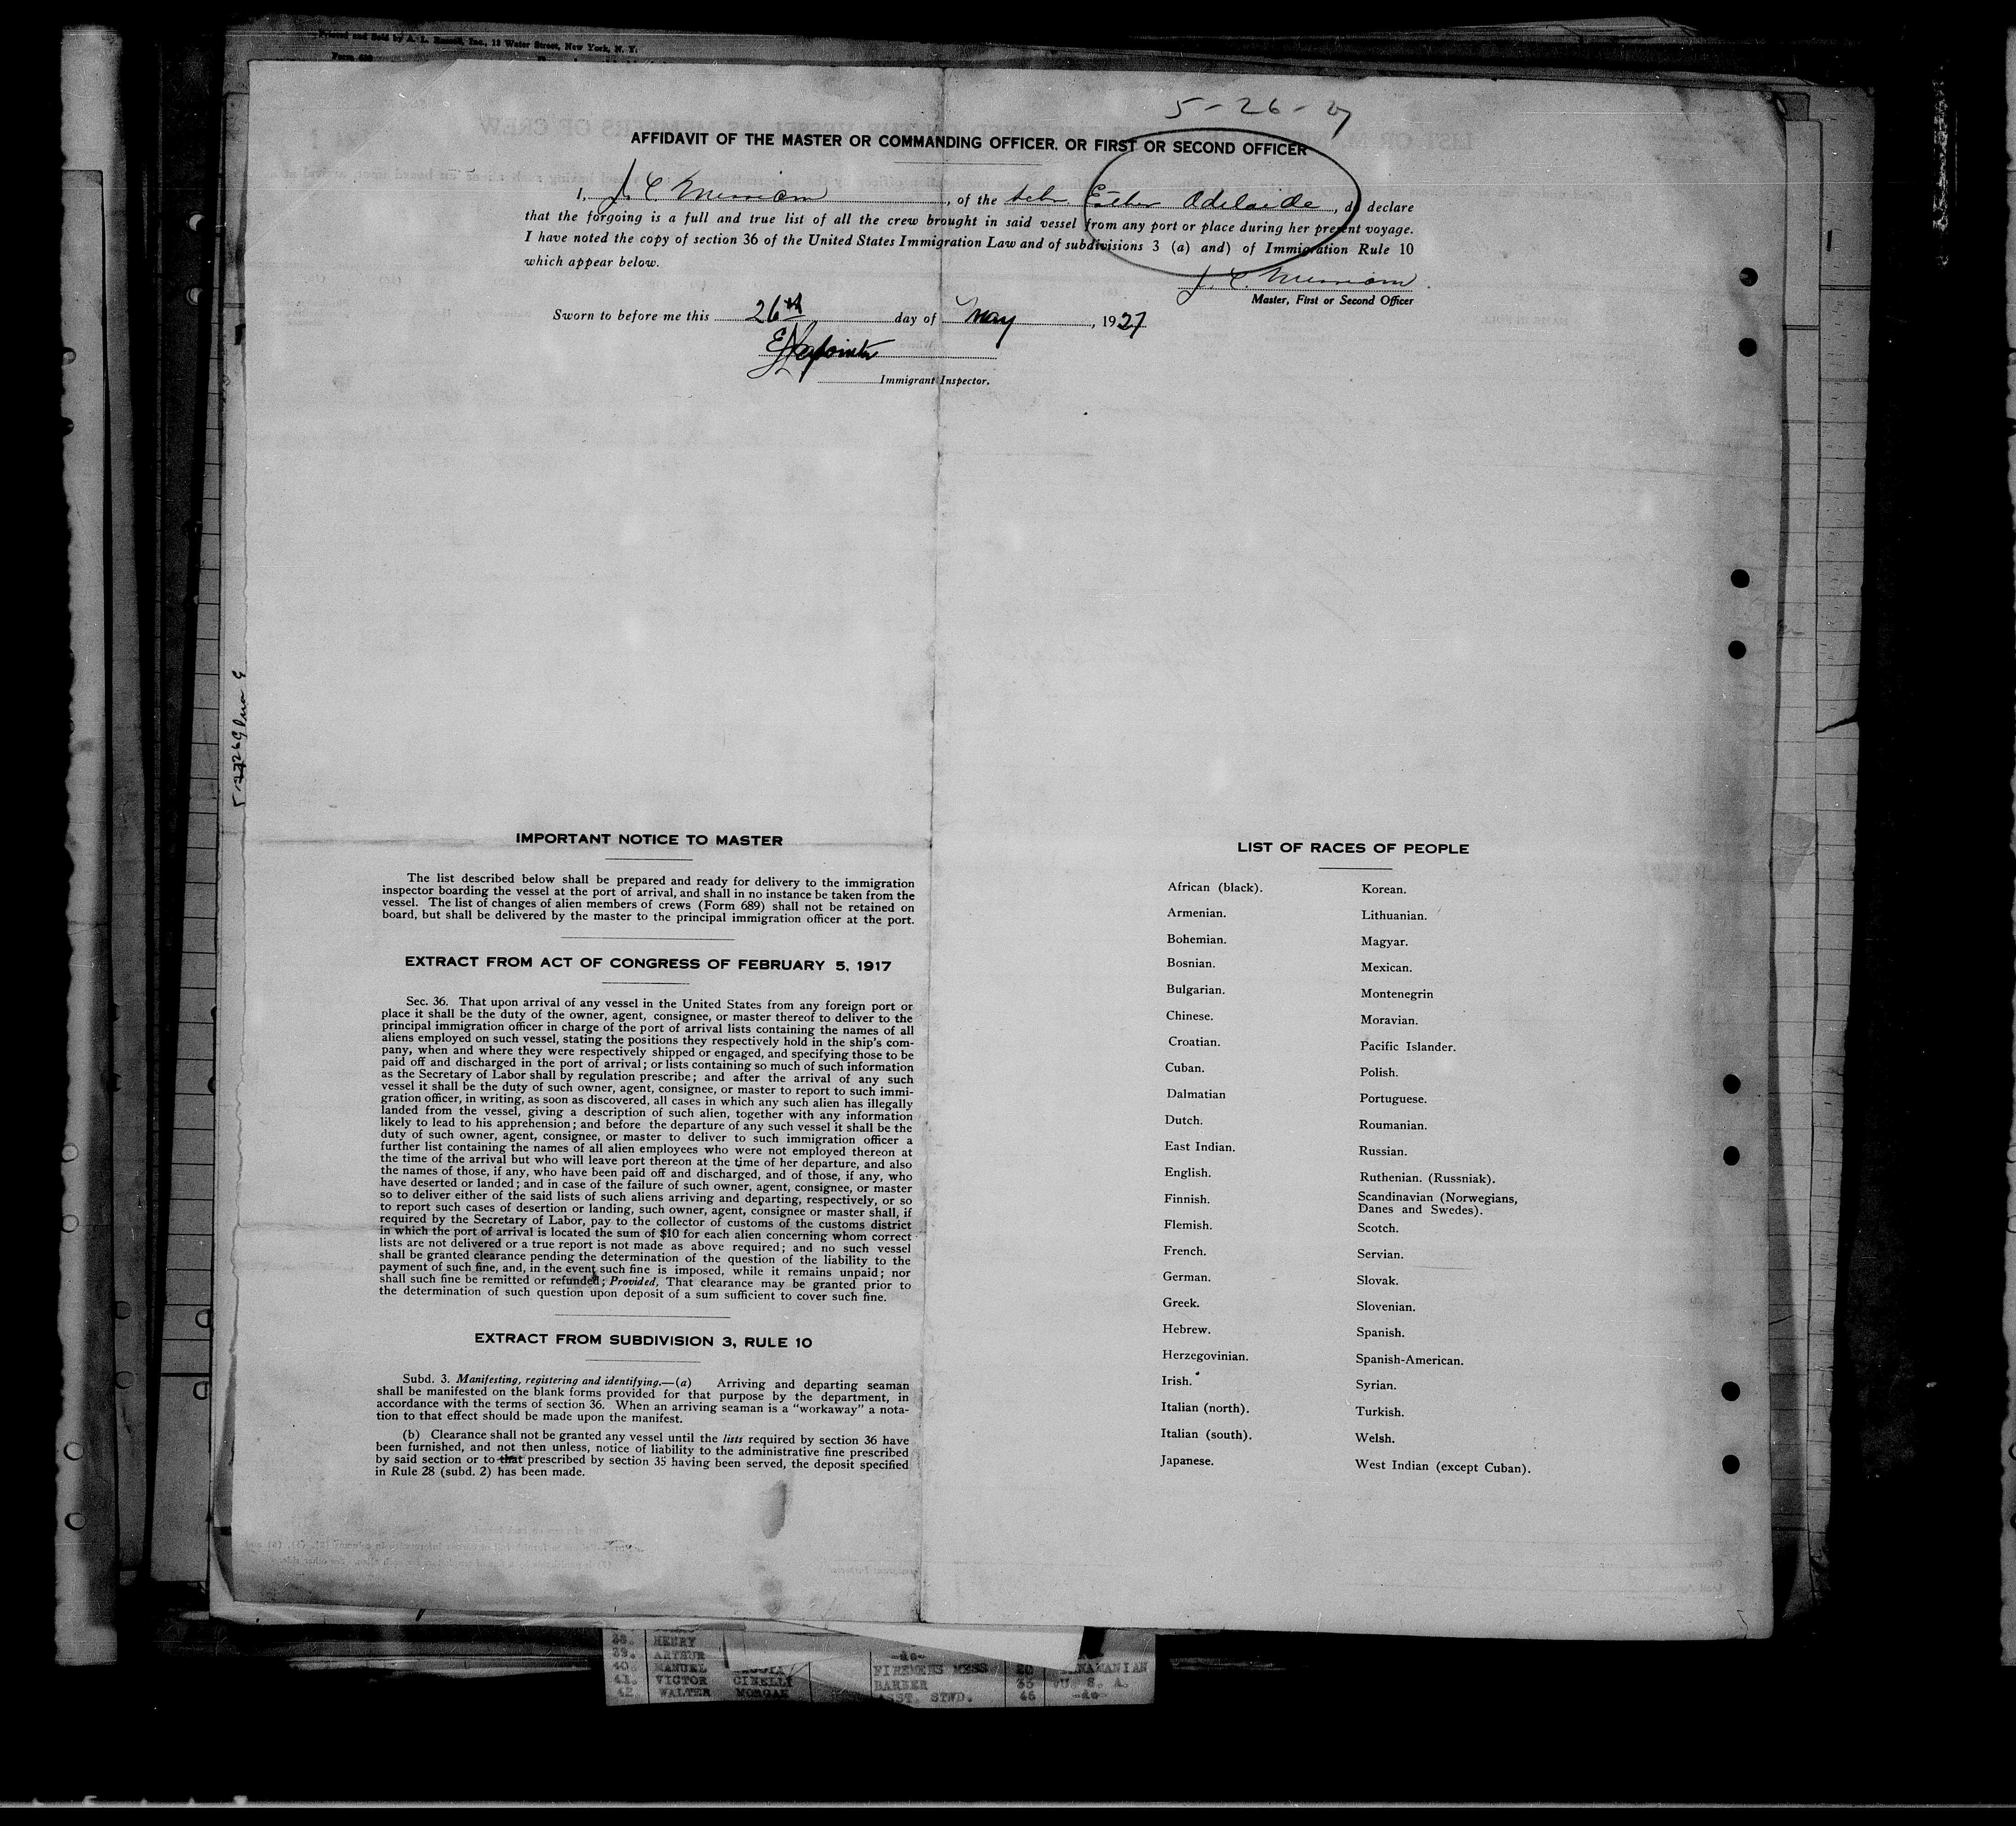 Printed and Sold by A. L. Russell, Inc., 12 Water Street, New York, N. Y.
Form 689
5-26-27
AFFIDAVIT OF THE MASTER OR COMMANDING OFFICER, OR FIRST OR SECOND OFFICER
I, J. C. Merriam, of the schr Esther Adelaide, do declare
that the forgoing is a full and true list of all the crew brought in said vessel from any port or place during her present voyage.
I have noted the copy of section 36 of the United States Immigration Law and of subdivisions 3 (a) and) of Immigration Rule 10
which appear below.
J. C. Merriam
Master, First or Second Officer
Sworn to before me this 26th day of May, 1927
Immigrant Inspector.
IMPORTANT NOTICE TO MASTER
The list described below shall be prepared and ready for delivery to the immigration
inspector boarding the vessel at the port of arrival, and shall in no instance be taken from the
vessel. The list of changes of alien members of crews (Form 689) shall not be retained on
board, but shall be delivered by the master to the principal immigration officer at the port.
EXTRACT FROM ACT OF CONGRESS OF FEBRUARY 5, 1917
Sec. 36. That upon arrival of any vessel in the United States from any foreign port or
place it shall be the duty of the owner, agent, consignee, or master thereof to deliver to the
principal immigration officer in charge of the port of arrival lists containing the names of all
aliens employed on such vessel, stating the positions they respectively hold in the ship's com-
pany, when and where they were respectively shipped or engaged, and specifying those to be
paid off and discharged in the port of arrival; or lists containing so much of such information
as the Secretary of Labor shall by regulation prescribe; and after the arrival of any such
vessel it shall be the duty of such owner, agent, consignee, or master to report to such immi-
gration officer, in writing, as soon as discovered, all cases in which any such alien has illegally
landed from the vessel, giving a description of such alien, together with any information
likely to lead to his apprehension; and before the departure of any such vessel it shall be the
duty of such owner, agent, consignee, or master to deliver to such immigration officer a
further list containing the names of all alien employees who were not employed thereon at
the time of the arrival but who will leave port thereon at the time of her departure, and also
the names of those, if any, who have been paid off and discharged, and of those, if any, who
have deserted or landed; and in case of the failure of such owner, agent, consignee, or master
so to deliver either of the said lists of such aliens arriving and departing, respectively, or so
to report such cases of desertion or landing, such owner, agent, consignee or master shall, if
required by the Secretary of Labor, pay to the collector of customs of the customs district
in which the port of arrival is located the sum of $10 for each alien concerning whom correct
lists are not delivered or a true report is not made as above required; and no such vessel
shall be granted clearance pending the determination of the question of the liability to the
payment of such fine, and, in the event such fine is imposed, while it remains unpaid; nor
shall such fine be remitted or refunded; Provided, That clearance may be granted prior to
the determination of such question upon deposit of a sum sufficient to cover such fine.
EXTRACT FROM SUBDIVISION 3, RULE 10
Subd. 3. Manifesting, registering and identifying.—(a) Arriving and departing seaman
shall be manifested on the blank forms provided for that purpose by the department, in
accordance with the terms of section 36. When an arriving seaman is a "workaway" a nota-
tion to that effect should be made upon the manifest.
(b) Clearance shall not be granted any vessel until the lists required by section 36 have
been furnished, and not then unless, notice of liability to the administrative fine prescribed
by said section or to that prescribed by section 35 having been served, the deposit specified
in Rule 28 (subd. 2) has been made.
LIST OF RACES OF PEOPLE
African (black). Korean.
Armenian. Lithuanian.
Bohemian. Magyar.
Bosnian. Mexican.
Bulgarian. Montenegrin
Chinese. Moravian.
Croatian. Pacific Islander.
Cuban. Polish.
Dalmatian Portuguese.
Dutch. Roumanian.
East Indian. Russian.
English. Ruthenian. (Russniak).
Finnish. Scandinavian (Norwegians,
Danes and Swedes).
Flemish. Scotch.
French. Servian.
German. Slovak.
Greek. Slovenian.
Hebrew. Spanish.
Herzegovinian. Spanish-American.
Irish. Syrian.
Italian (north). Turkish.
Italian (south). Welsh.
Japanese. West Indian (except Cuban).
38. HENRY
39. ARTHUR -do-
40. MANUEL FIREMENS MESS 20
41. VICTOR CINELLI BARBER 35 U. S. A.
42. WALTER MORGAN ASST. STWD. 46 -do-